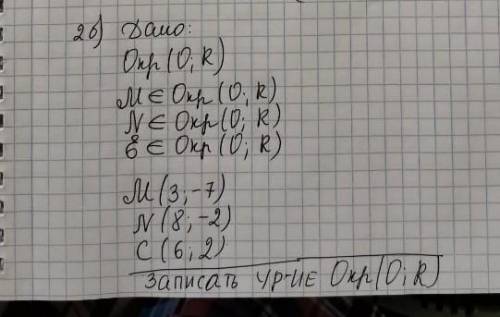 2б) Дано:
Окр(O; R)
M ∈ Окр(O; R)
N ∈ Окр(O; R)
C ∈ Окр(O; R)
M(3; -7)
N(8; -2)
C(6; 2)
Записать ур-ие Окр(O; R)